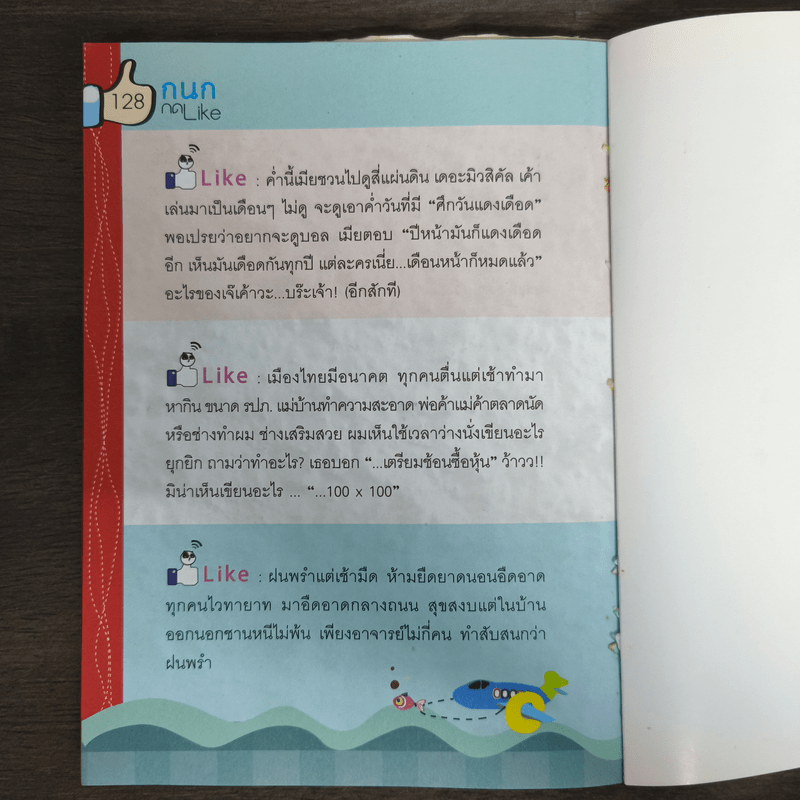 128
กนก
กดLike
Like : ค่ำนี้เมียชวนไปดูสี่แผ่นดิน เดอะมิวสิคัล เค้า
เล่นมาเป็นเดือนๆ ไม่ดู จะดูเอาค่ำวันที่มี “ศึกวันแดงเดือด”
พอเปรยว่าอยากจะดูบอล เมียตอบ “ปีหน้ามันก็แดงเดือด
อีก เห็นมันเดือดกันทุกปี แต่ละครเนี่ย...เดือนหน้าก็หมดแล้ว”
อะไรของเจ๊เค้าวะ...บร๊ะเจ้า! (อีกสักที)
Like : เมืองไทยมีอนาคต ทุกคนตื่นแต่เช้าทำมา
หากิน ขนาด รปภ. แม่บ้านทำความสะอาด พ่อค้าแม่ค้าตลาดนัด
หรือช่างทำผม ช่างเสริมสวย ผมเห็นใช้เวลาว่างนั่งเขียนอะไร
ยุกยิก ถามว่าทำอะไร? เธอบอก “...เตรียมช้อนซื้อหุ้น” ว้าวว!!
มิน่าเห็นเขียนอะไร ... “...100 x 100”
Like : ฝนพรำแต่เช้ามืด ห้ามยืดยาดนอนอืดอาด
ทุกคนไวทายาท มาอืดอาดกลางถนน สุขสงบแต่ในบ้าน
ออกนอกชานหนีไม่พ้น เพียงอาจารย์ไม่กี่คน ทำสับสนกว่า
ฝนพรำ